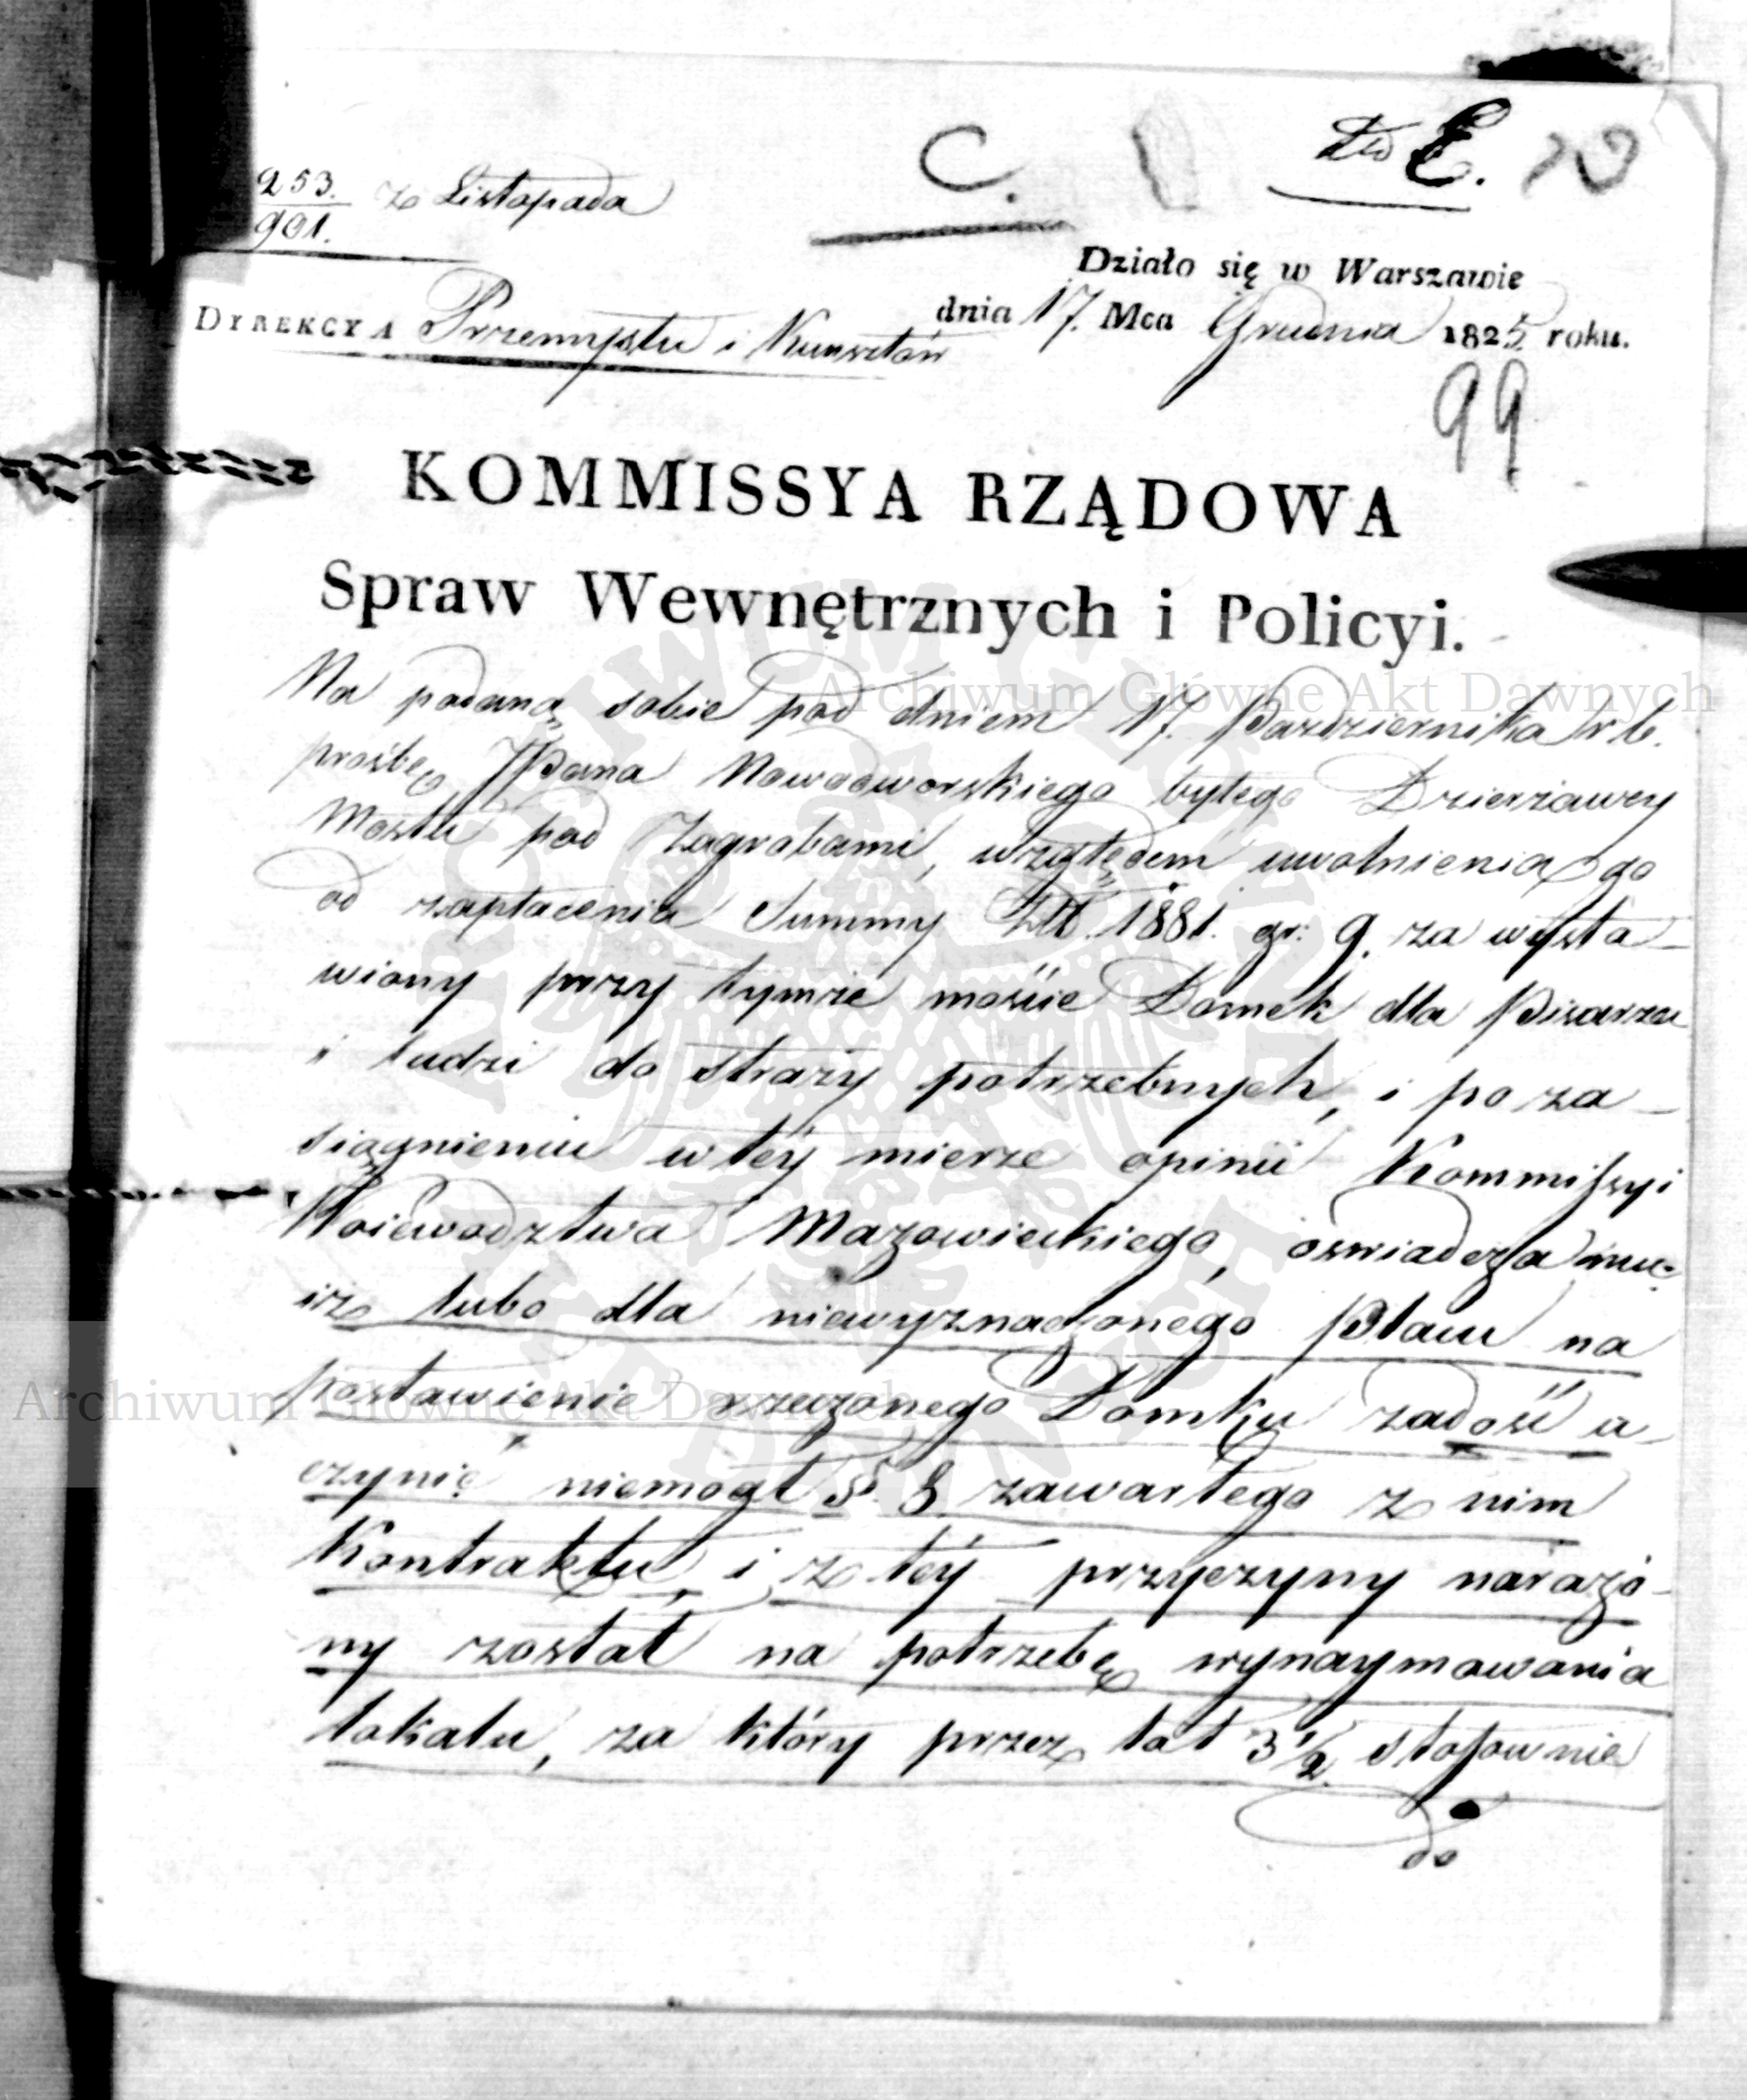 C.
do E.
253. z Listopada
901.
Działo się w Warszawie
DYREKCYA Przemysłu i Kunsztów
dnia 17. Mca Grudnia 1825 roku.
99
KOMMISSYA RZĄDOWA
Spraw Wewnętrznych i Policyi.
Na podaną sobie pod dniem 17. Pazdziernika r b.
prośbę JPana Nowodworskiego byłego Dzierżawcy
Mostu pod Zagrobami, względem uwolnienia go
od zapłacenia Summy Złt. 1881. gr: 9. za wysta-
wiony przy tymże moście Domek dla Pisarza
i ludzi do straży potrzebnych, i po za-
siągnieniu w téy mierze opinii Kommissyi
Woiewodztwa Mazowieckiego, oświadcza mu:
iż lubo dla niewyznaczonego Placu na
postawienie rzeczonego Domku zadość u-
czynić niemogł §. 8 zawartego z nim
Kontraktu, i z téy przyczyny narażo-
ny został na potrzebę wynaymowania
lokalu, za który przez lat 3 1/2 stosownie
do
Archiwum Główne Akt Dawnych
Archiwum Główne Akt Dawnych
ARCHIWUM GŁÓWNE
AKT DAWNYCH